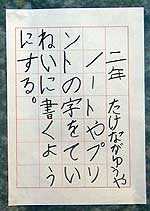 二年 たけながゆうや
ノートやプリ
ントの字をてい
ねいに書くよう
にする。